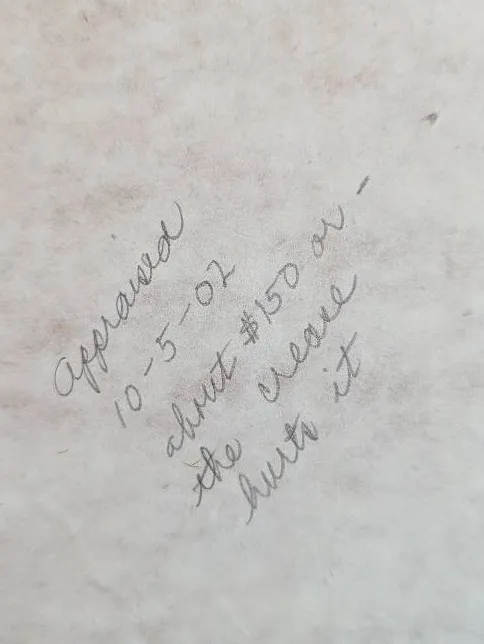 Appraised
10-5-02
about $150 or -
the crease
hurts it